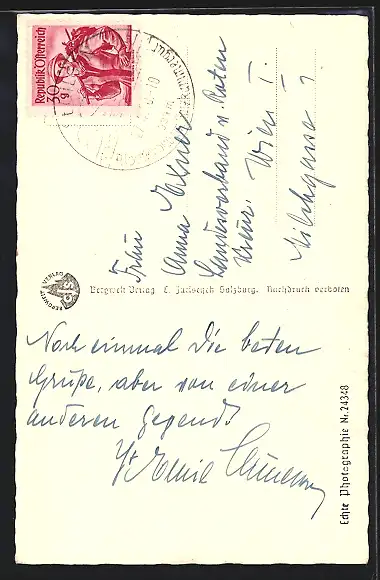 Republik Österreich
30
Frau
Anna Exner
Landesverband v. Roten
Kreuz. Wien I.
Milchgasse 1
BERGWELT VERLAG
Bergwelt Verlag C. Jurischek Salzburg. Nachdruck verboten
Noch einmal die besten
Grüße, aber von einer
anderen Gegend!
Echte Photographie Nr. 24348